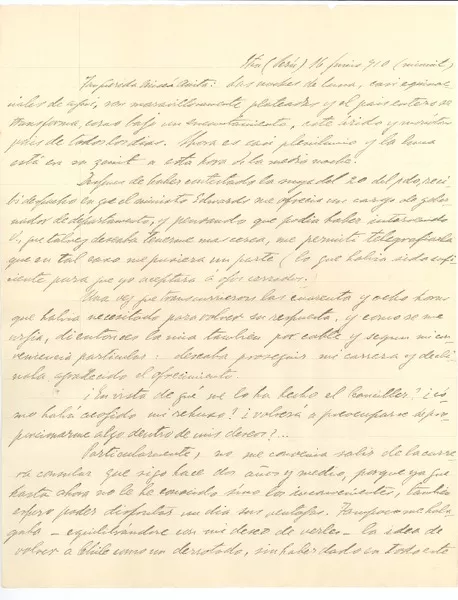 Ilo (Perú) 16 Junio 910 (nimil)
Las noches de luna, casi equinoc-
ciales de aquí, son maravillosamente plateadas y el país entero se
transforma, como bajo un encantamiento, este árido y monótono
país de todos los días. Ahora es casi plenilunio y la luna
está en su zenit a esta hora de la media noche.
Después de haber contestado la suya del 20 del pdo, reci-
bí despacho en qe el ministro Edwards me ofrecía un cargo de gober-
nador de departamento, y pensando que podía haber intervenido
V., que tal vez deseaba tenerme mas cerca, me permití telegrafiarla
que en tal caso me pusiera un parte (lo que habría sido sufi-
ciente para que yo aceptara á ojos cerrados.
Una vez qe transcurrieron las cuarenta y ocho horas
que habría necesitado para volver su respuesta, y como se me
urjía, dí entonces la mia tambien por cable y segun mi con-
veniencia particular: deseaba proseguir mi carrera y decli-
naba agradecido el ofrecimiento.
¿En vista de qé me lo ha hecho el Canciller? ¿có-
mo habrá acojido mi rehusa? ¿volverá a preocuparse de pro-
porcionarme algo dentro de mis deseos?...
Particularmente, no me convenia salir de la carre-
ra consular que sigo hace dos años y medio, porque ya que
hasta ahora no le he conocido sino los inconvenientes, tambien
espero poder disfrutar un día sus ventajas. Tampoco me hala-
gaba - equilibrándose con mi deseo de verlos - la idea de
volver a Chile como un derrotado, sin haber dado en todo este